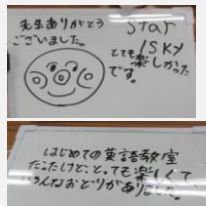 先生ありがとう
ございました。
star
1SKY
とても
楽しかった
です。
はじめての英語教室
だったけど、とっても楽しくて
いろんなおどりがありました。